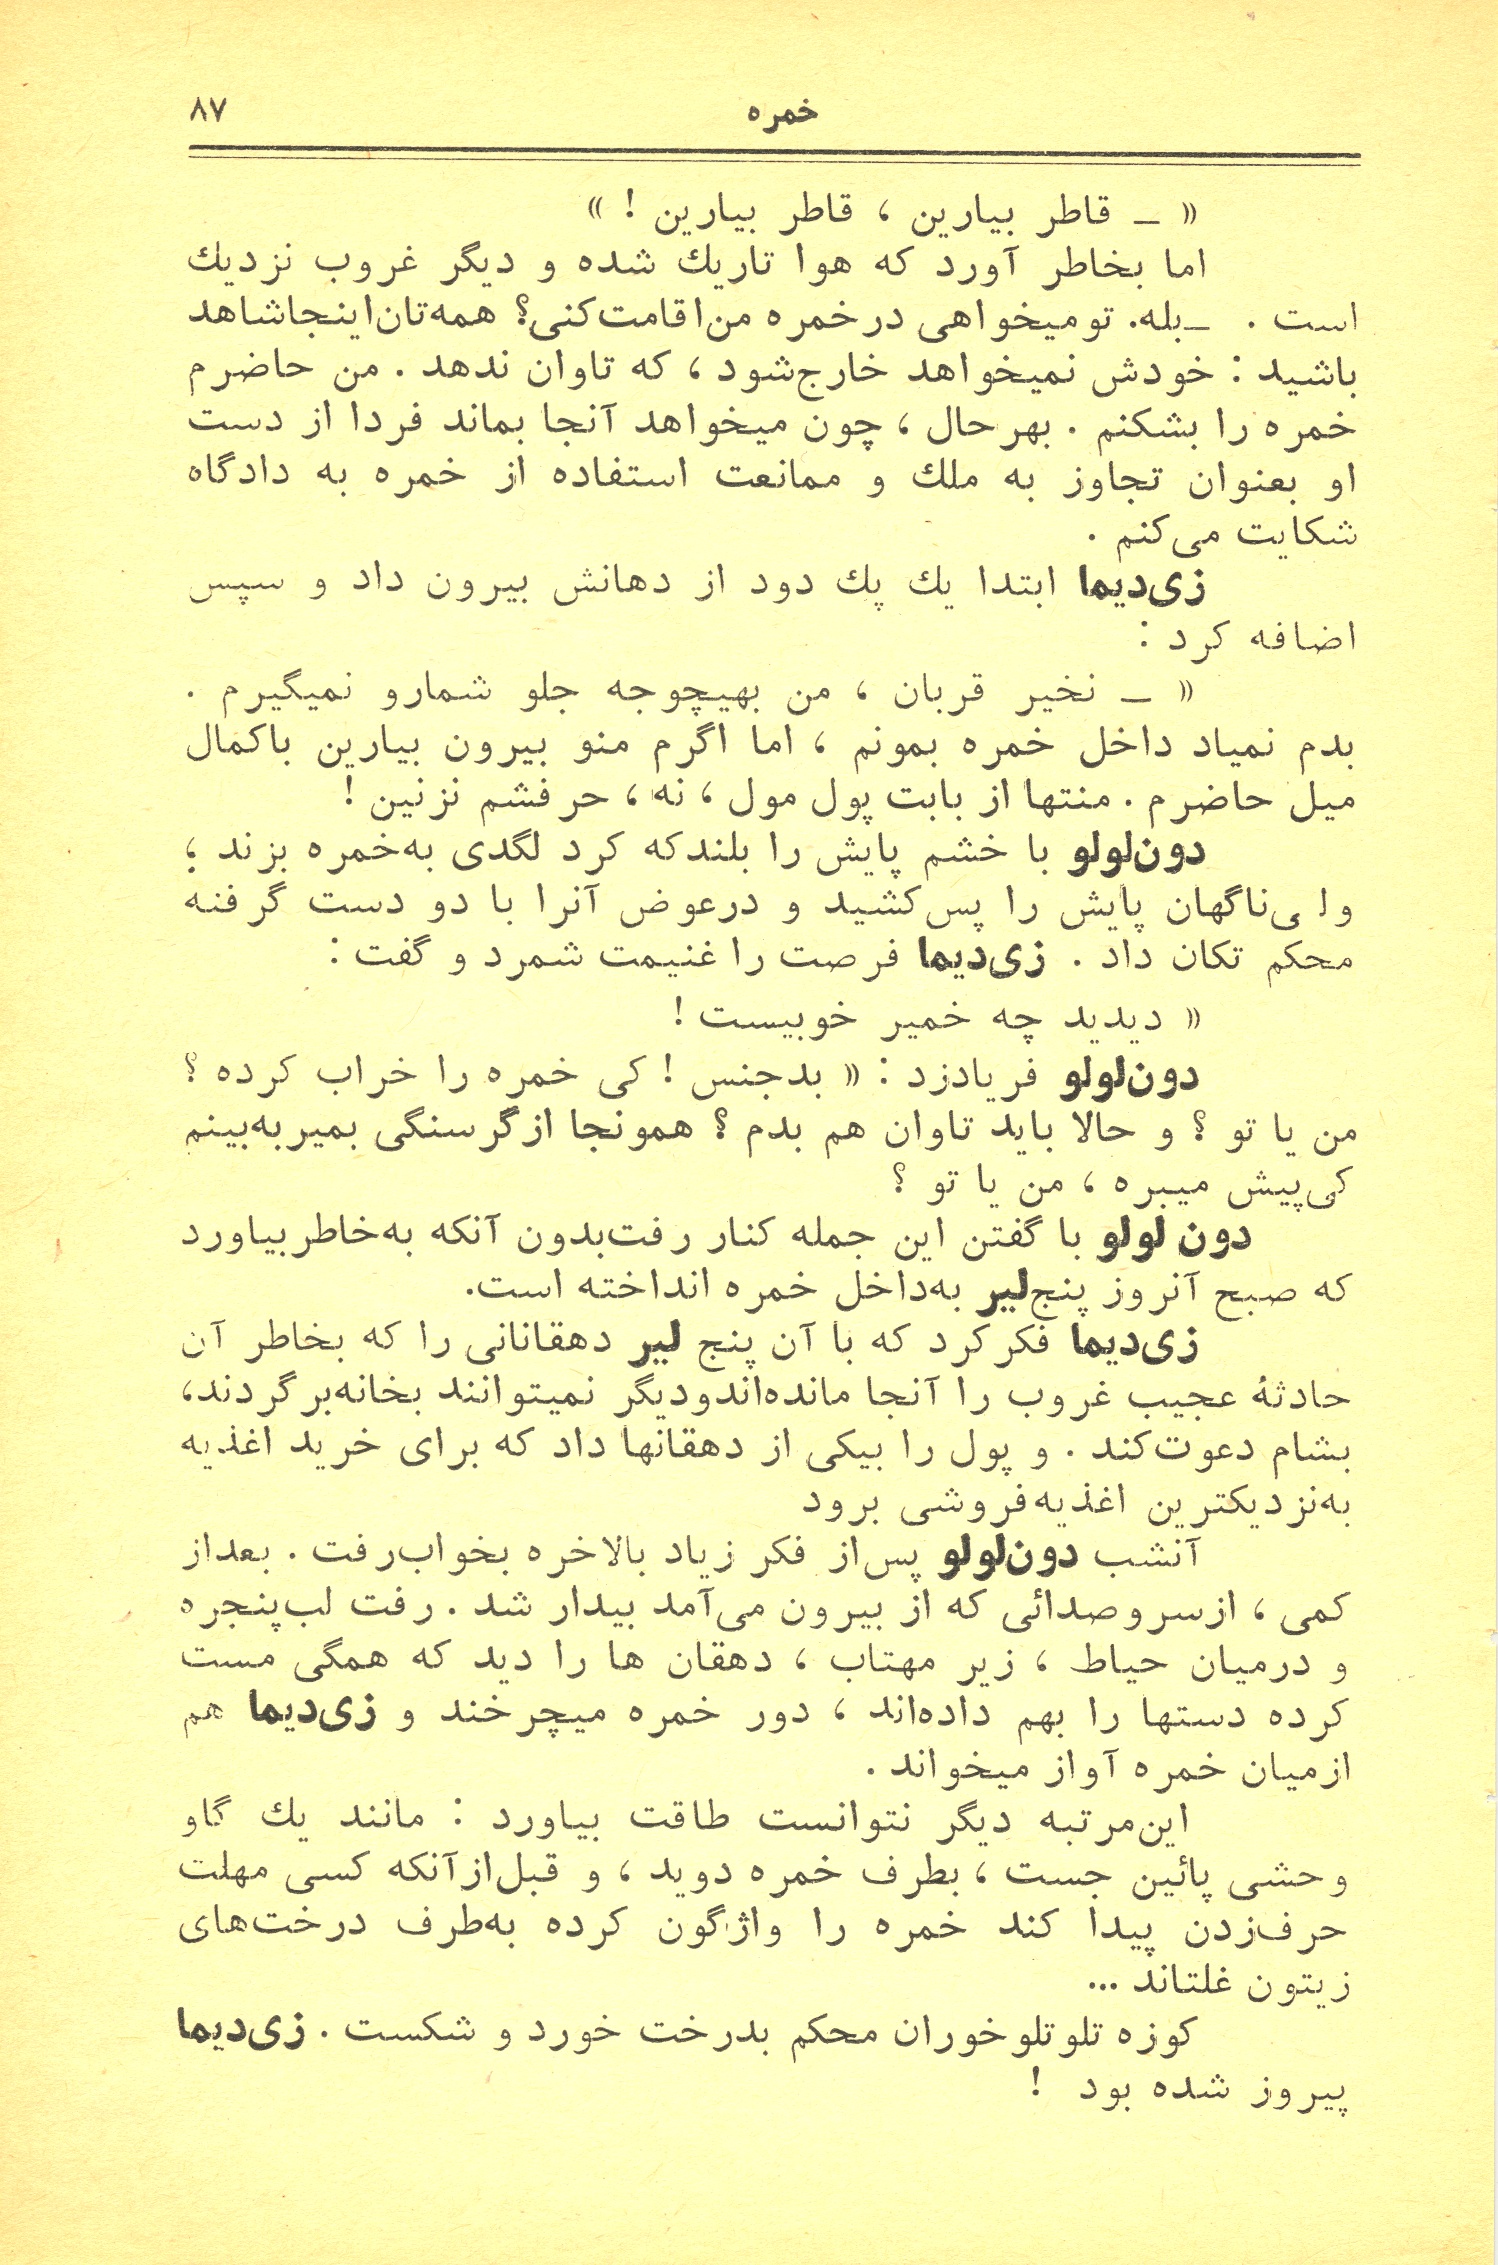 خمره ۸۷
« ــ قاطر بیارین ، قاطر بیارین ! »
اما بخاطر آورد که هوا تاریك شده و دیگر غروب نزدیك
است . ــبله. تو میخواهی درخمره من اقامت‌کنی؟ همه‌تان اینجا شاهد
باشید : خودش نمیخواهد خارج‌شود ، که تاوان ندهد . من حاضرم
خمره را بشکنم . بهرحال ، چون میخواهد آنجا بماند فردا از دست
او بعنوان تجاوز به ملك و ممانعت استفاده از خمره به دادگاه
شکایت می‌کنم .
زی‌دیما ابتدا یك پك دود از دهانش بیرون داد و سپس
اضافه کرد :
« ــ نخیر قربان ، من بهیچوجه جلو شمارو نمیگیرم .
بدم نمیاد داخل خمره بمونم ، اما اگرم منو بیرون بیارین باکمال
میل حاضرم . منتها از بابت پول مول ، نه ، حرفشم نزنین !
دون‌لولو با خشم پایش را بلندکه کرد لگدی به‌خمره بزند ؛
ولی‌ناگهان پایش را پس‌کشید و درعوض آنرا با دو دست گرفته
محکم تکان داد . زی‌دیما فرصت را غنیمت شمرد و گفت :
« دیدید چه خمیر خوبیست !
دون‌لولو فریادزد : « بدجنس ! کی خمره را خراب کرده ؟
من یا تو ؟ و حالا باید تاوان هم بدم ؟ همونجا ازگرسنگی بمیر به‌بینم
کی‌پیش میبره ، من یا تو ؟
دون لولو با گفتن این جمله کنار رفت‌بدون آنکه به‌خاطربیاورد
که صبح آنروز پنج‌لیر به‌داخل خمره انداخته است.
زی‌دیما فکرکرد که با آن پنج لیر دهقانانی را که بخاطر آن
حادثهٔ عجیب غروب را آنجا مانده‌اندودیگر نمیتوانند بخانه‌برگردند،
بشام دعوت‌کند . و پول را بیکی از دهقانها داد که برای خرید اغذیه
به‌نزدیکترین اغذیه‌فروشی برود
آنشب دون‌لولو پس‌از فکر زیاد بالاخره بخواب‌رفت . بعداز
کمی ، ازسروصدائی که از بیرون می‌آمد بیدار شد . رفت لب‌پنجره
و درمیان حیاط ، زیر مهتاب ، دهقان ها را دید که همگی مست
کرده دستها را بهم داده‌اند ، دور خمره میچرخند و زی‌دیما هم
ازمیان خمره آواز میخواند .
این‌مرتبه دیگر نتوانست طاقت بیاورد : مانند یك گاو
وحشی پائین جست ، بطرف خمره دوید ، و قبل‌ازآنکه کسی مهلت
حرف‌زدن پیدا کند خمره را واژگون کرده به‌طرف درخت‌های
زیتون غلتاند ...
کوزه تلوتلوخوران محکم بدرخت خورد و شکست . زی‌دیما
پیروز شده بود !